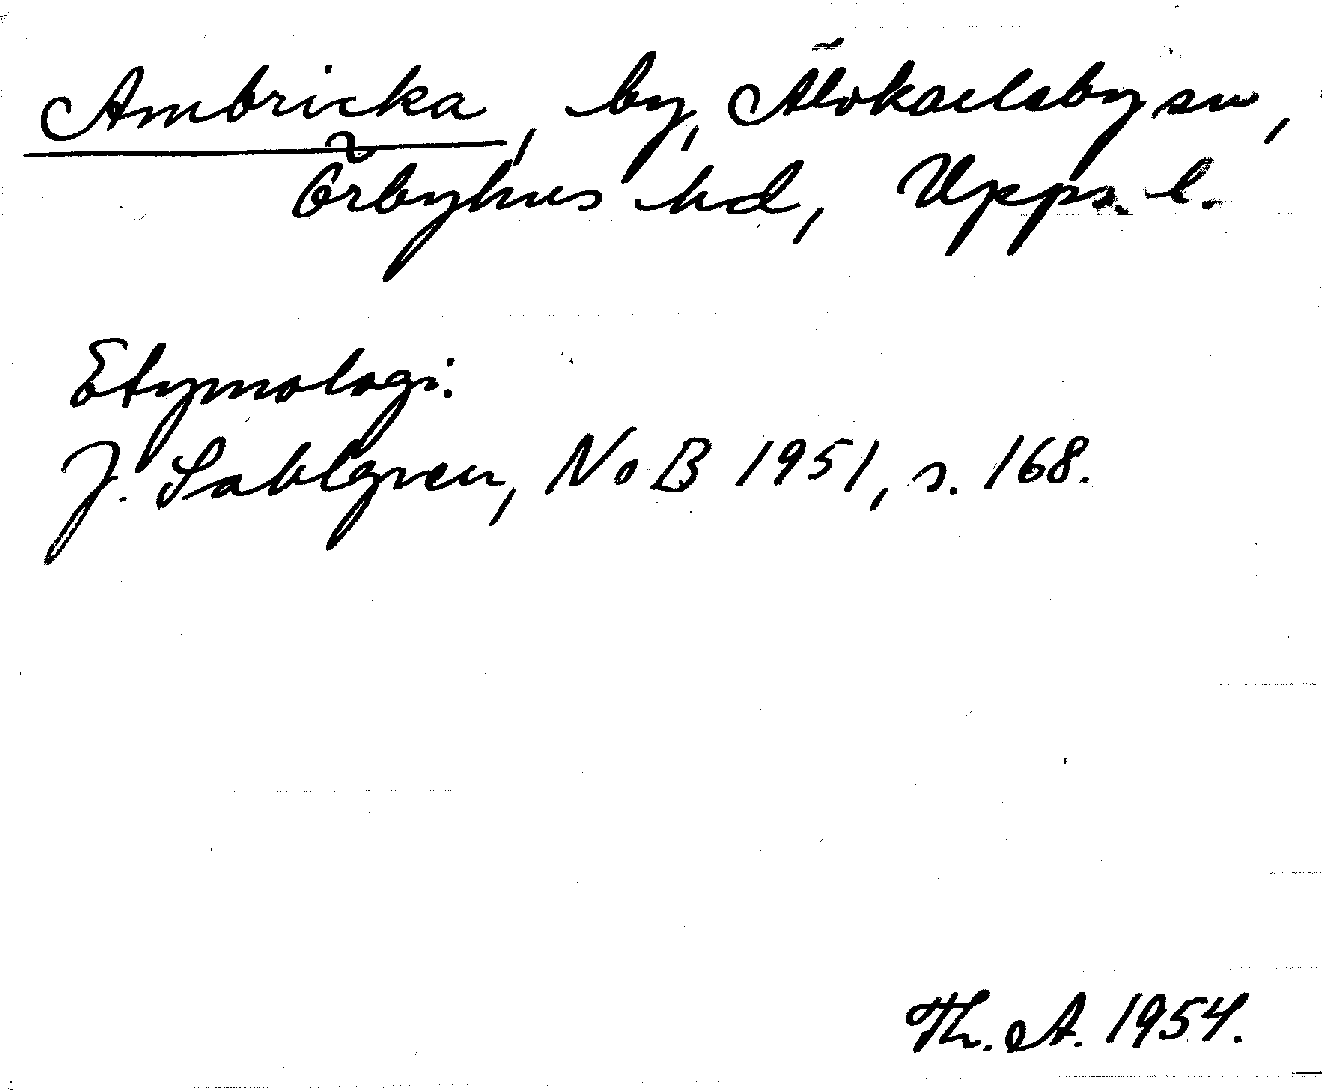 Ambricka, by, Älvkarleby sn,
Örbyhus hd, Upps. l.
Etymologi.
J. Sahlgren, NoB 1951, s. 168.
Th. A. 1954.